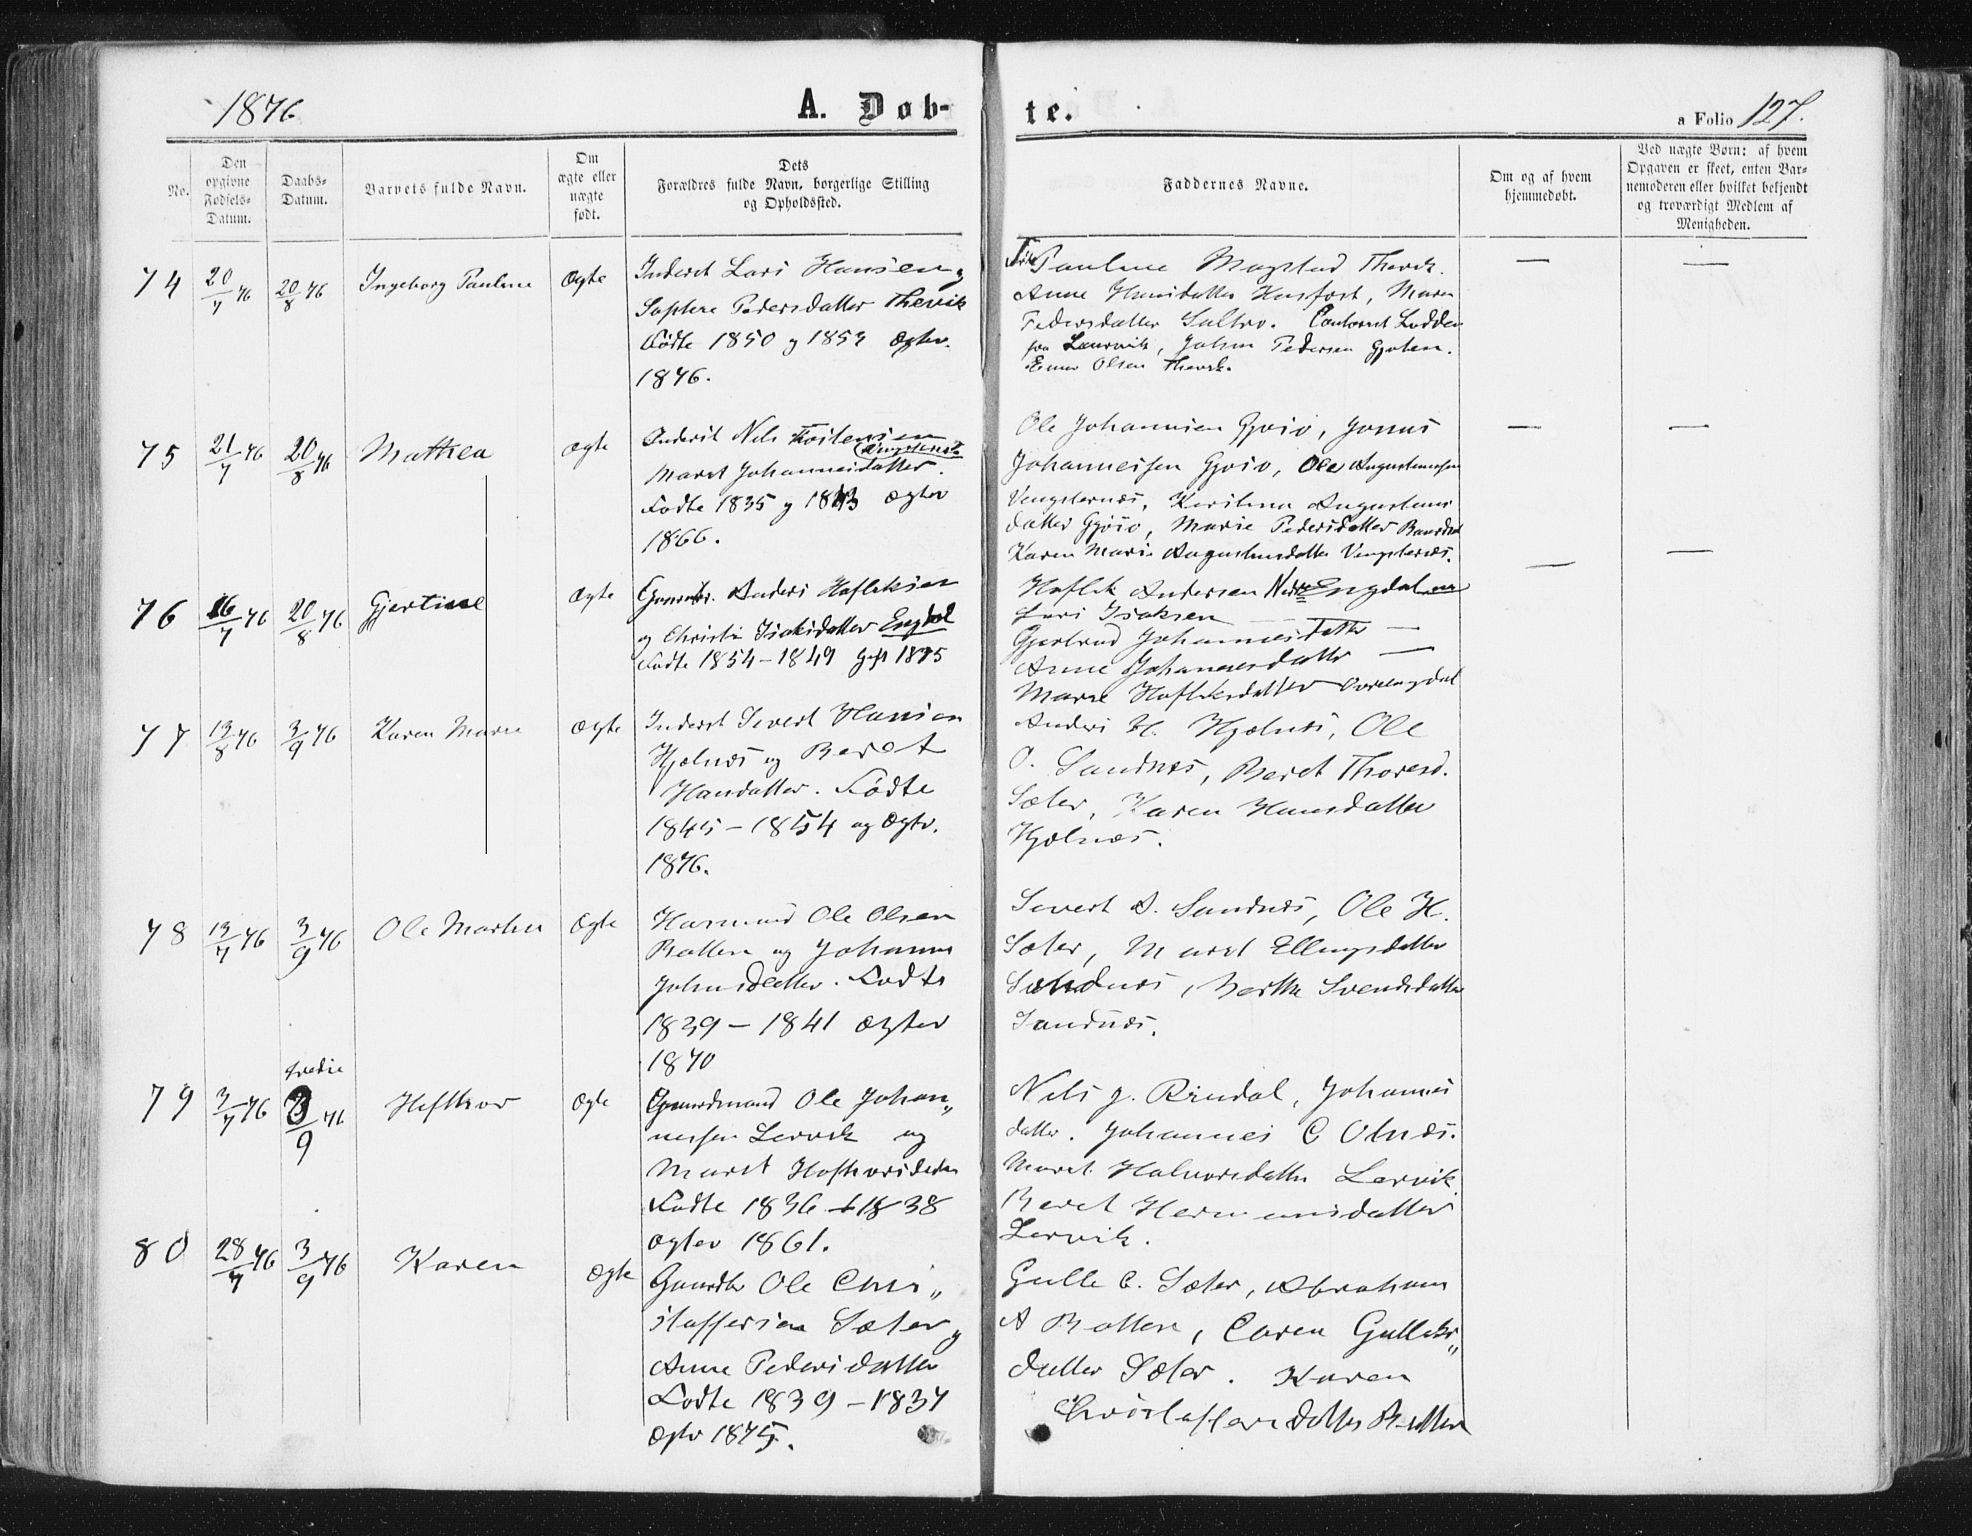 1876
A. Døb-
te.
a Folio 127.
No.
Den
opgivne
Fødsels-
Datum.
Daabs-
Datum.
Barnets fulde Navn.
Om
ægte eller
uægte
født.
Dets
Forældres fulde Navn, borgerlige Stilling
og Opholdssted.
Faddernes Navne.
Om og af hvem
hjemmedøbt.
Ved uægte Børn: af hvem
Opgaven er skeet, enten Bar-
nemoderen eller hvilket bekjendt
og troværdigt Medlem af
Menigheden.
74
20/7 76
20/8 76
Ingeborg Pauline
Ægte
Inderst Lars Hansen og
Pedersdatter Thevik
Fødte 1850 og 1853 Ægtev.
1876.
Pauline Magstad Thevik.
Anne Hansdatter Husfast, Maren
Pedersdatter Saltrø.
fra Laurvik, Johan Pedersen Gjølen.
Olsen Thevik.
—
—
75
21/7 76
20/8 76
Mathea
Ægte
Inderst Nils
Vingsternæs
Maret Johannesdatter.
Fødte 1835 og 1843 Ægtev
1866.
Ole Johannsen Gjøsø, Jonas
Johannessen Gjøsø, Ole Augustinussen
Vengsternæs, Augustinus
datter Gjøsø, Marie Pedersdatter
Karen Marie Augustinusdatter Vengsternæs.
—
—
76
16/7 76
20/8 76
Gjertine
Ægte
Gaardbr. Anders Hafteksen
og Christi Isaksdatter Engdal
Fødte 1854 – 1849 Gift 1875
Andersen Nedre Engdal
Lars Isaksen —
Gjertrud Johannesdatter —
Anne Johannesdatter —
Marie Engdal
—
—
77
13/8 76
3/9 76
Karen Marie
Ægte
Inderst Sivert Hansen
Hjelnæs og Beret
Hansdatter. Fødte
1845 – 1854 og Ægtv.
1876.
Anders H. Hjelnæs, Ole
O. Sandnæs, Beret Thoresd.
Sæter, Karen Hansdatter
Hjelnæs.
78
13/7 76
3/9 76
Ole Martin
Ægte
Husmand Ole Olsen
Batten og Johanna
Johnsdatter. Fødte
1839 – 1841 Ægtev
1870
Sivert A. Sandnæs, Ole H.
Sæter, Maret Ellingsdatter
Sandnæs, Berthe Svendsdatter
Sandnæs.
79
3/7 76
tredie
3/9 76
Hafthor
Ægte
Gaardmand Ole Johan„
nessen Lervik og
Maret Hafthorsdatter
Fødte 1836 – 1838
Ægtev 1861.
Nils J. Rindal, Johannes
datter. Johannes C Olnæs.
Maret Halvorsdatter Lervik
Beret Hermansdatter
Lervik.
80
28/7 76
3/9 76
Karen
Ægte
Gaardbr Ole Chri„
stoffersen Sæter og
Anne Pedersdatter
Fødte 1839 – 1837
Ægtv 1875.
Gulle C. Sæter, Abraham
A Batten, Caren Gulleks„
datter Sæter. Karen
Christoffersdatter Batten